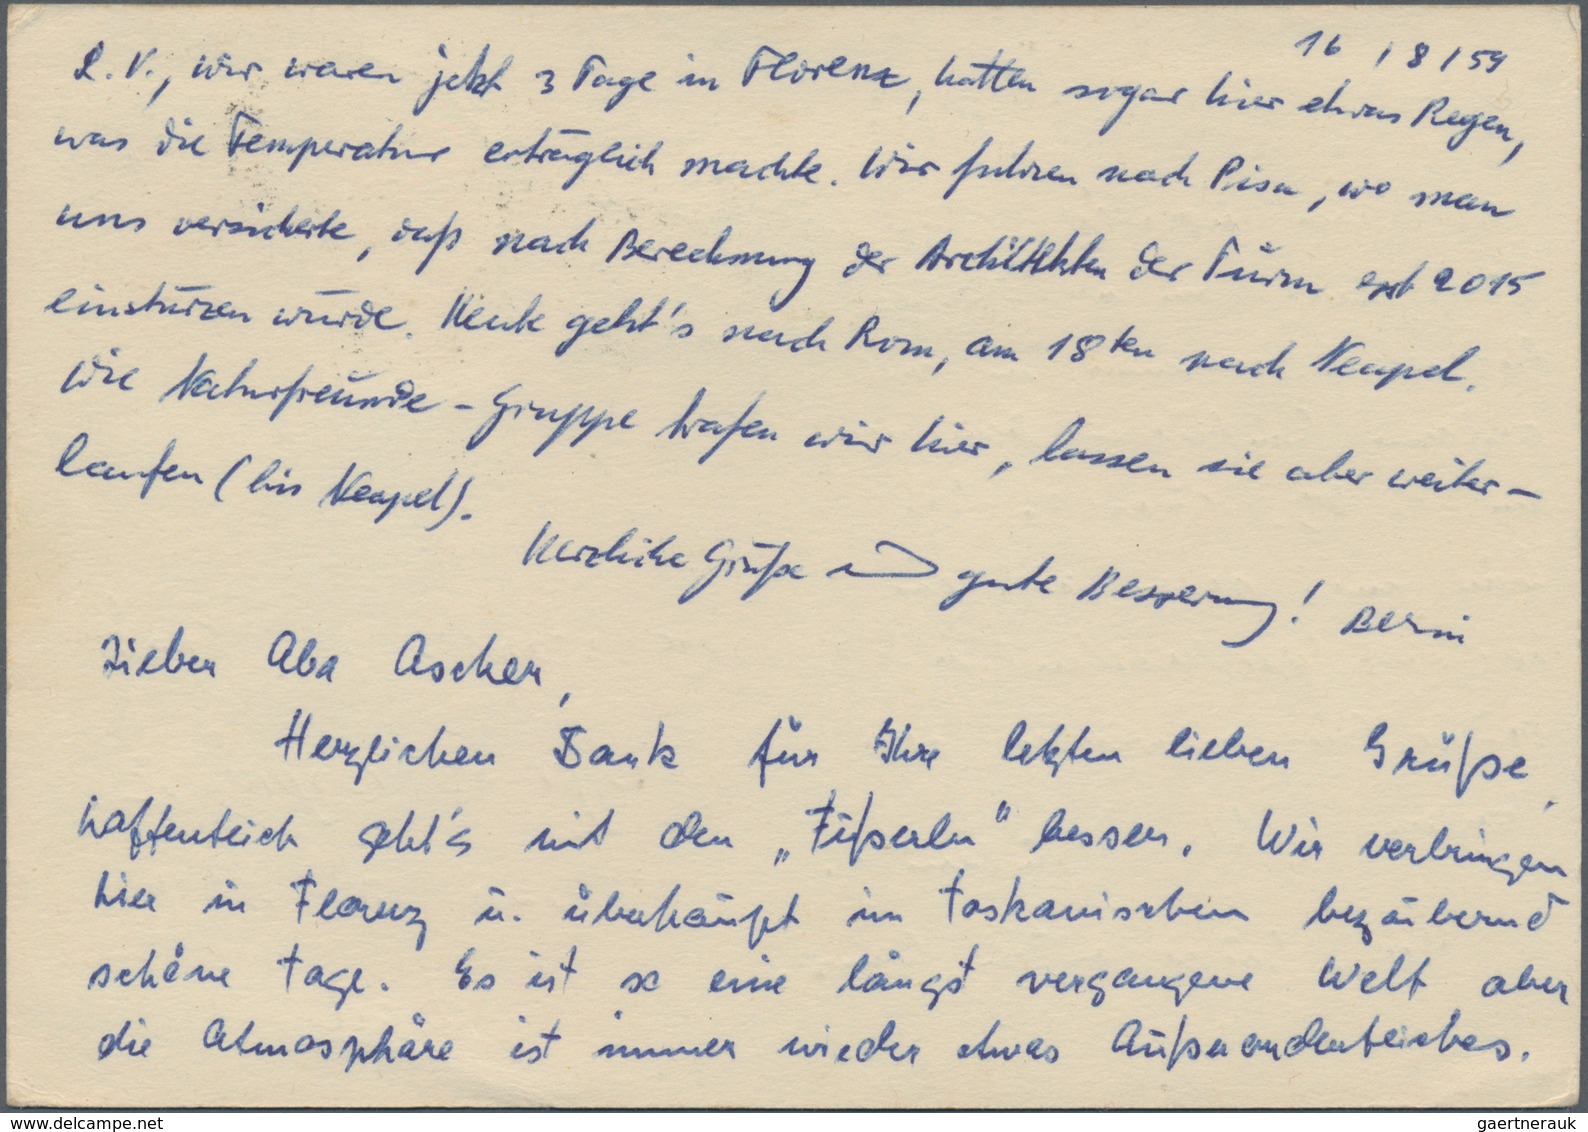 16/8/59
L. V., wir waren jetzt 3 Tage in Florenz, hatten sogar hier etwas Regen,
was die Temperatur erträglich machte. Wir fuhren nach Pisa, wo man
uns versicherte, daß nach Berechnung der Architekten der Turm erst 2015
einstürzen würde. Heute geht's nach Rom, am 18ten nach Neapel.
Die Naturfreunde-Gruppe trafen wir hier, lassen sie aber weiter-
laufen (bis Neapel).
Herzliche Grüße und gute Besserung!
Lieber Aba Ascher,
Herzlichen Dank für Ihre letzten lieben Grüße,
hoffentlich geht's mit den „Füßerln" besser. Wir verbringen
hier in Florenz u. überhaupt im toskanischen bezaubernd
schöne Tage. Es ist so eine längst vergangene Welt aber
die Atmosphäre ist immer wieder etwas Außerordentliches.
gaertnerauk
www.delcampe.net